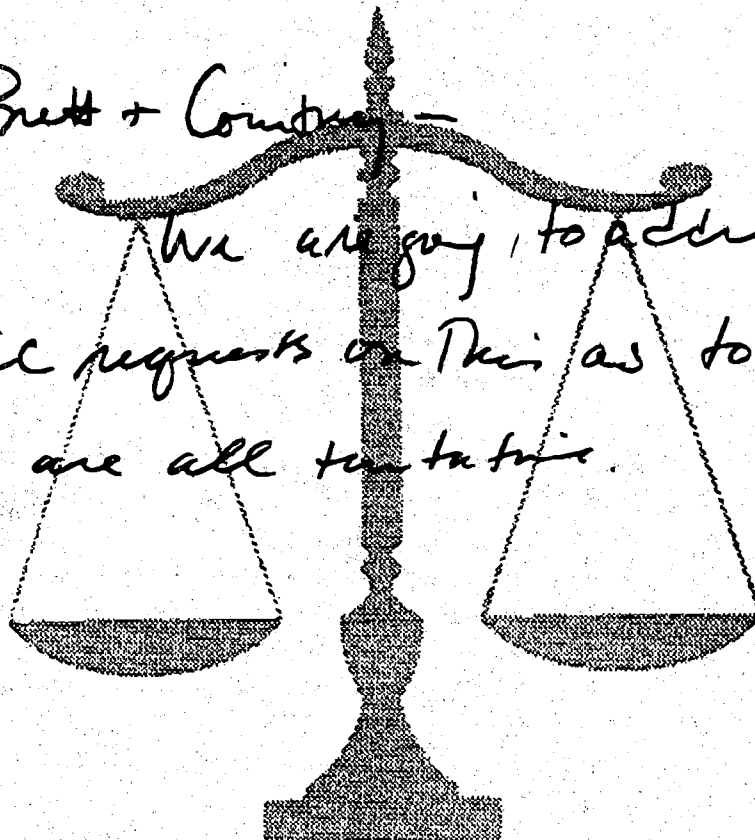 Brett + Courtney -
We are going, to addr
requests on This as to
are all tentative.